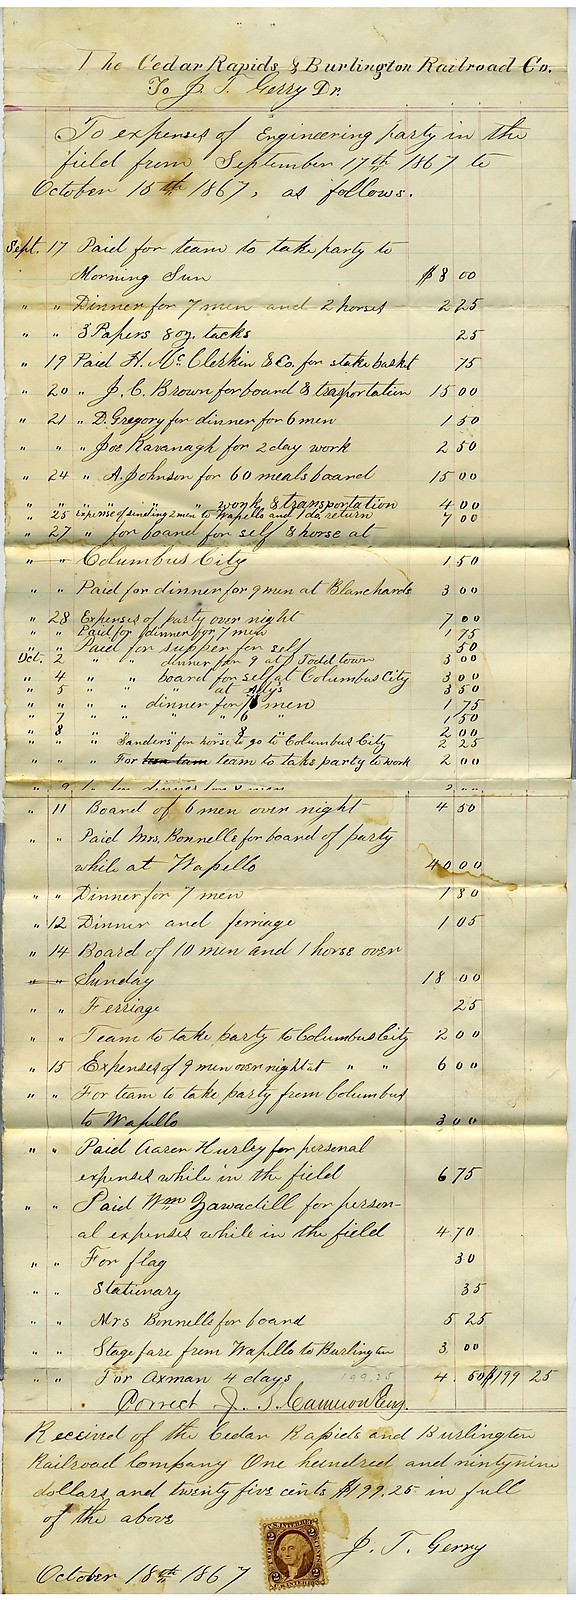 The Cedar Rapids & Burlington Railroad Co.
To J. T. Gerry Dr.
To expenses of Engineering party in the
field from September 17th 1867 to
October 15th 1867, as follows.
Sept. 17 Paid for team to take party to
Morning Sun $8 00
" " Dinner for 7 men and 2 horses 2 25
" " 3 Papers 8 oz. tacks 25
" 19 Paid H. McClerkin & Co. for stake basket 75
" 20 " J. C. Brown for board & trasportation 15 00
" 21 " D. Gregory for dinner for 6 men 1 50
" " " Joe Kavanagh for 2 day work 2 50
" 24 " A. Johnson for 60 meals board 15 00
" " " " " work & transportation 4 00
" 25 Expense of sending 2 men to Wapello and return 7 00
" 27 " for board for self & horse at
" " Columbus City 1 50
" " Paid for dinner for 9 men at Blanchards 3 00
" 28 Expenses of party over night 7 00
" " Paid for dinner for 7 men 1 75
" " Paid for supper for self 50
Oct. 2 " " dinner for 9 at Todd town 3 00
" 4 " " board for self at Columbus City 3 00
" 5 " " " at 3 50
" " " dinner for men 1 75
" 7 " " " 6 " 1 50
" 8 " " " 8 " 2 00
" " " Sanders for horse to go to Columbus City 2 25
" " " For team to take party to work 2 00
" 9 dinner men 2
" 11 Board of 6 men over night 4 50
" " Paid Mrs. Bonnells for board of party
while at Wapello 40 00
" " Dinner for 7 men 1 80
" 12 Dinner and ferriage 1 05
" 14 Board of 10 men and 1 horse over
" " Sunday 18 00
" " Ferriage 25
" " Team to take party to Columbus City 2 00
" 15 Expenses of 9 men over night at " " 6 00
" " For team to take party from Columbus
to Wapello 3 00
" " Paid Aaron Hurley for personal
expenses while in the field 6 75
" " Paid Wm Zawadill for person-
al expenses while in the field 4 70
" " For flag 30
" " Stationary 35
" " Mrs Bonnells for board 5 25
" " Stage fare from Wapello to Burlington 3 00
" " For Axman 4 days 199.25 4. 50 $199 25
Correct J. S. Cameron Eng.
Received of the Cedar Rapids and Burlington
Railroad Company One hundred and ninty nine
dollars and twenty five cents $199.25 in full
of the above
J. T. Gerry
October 18th 1867